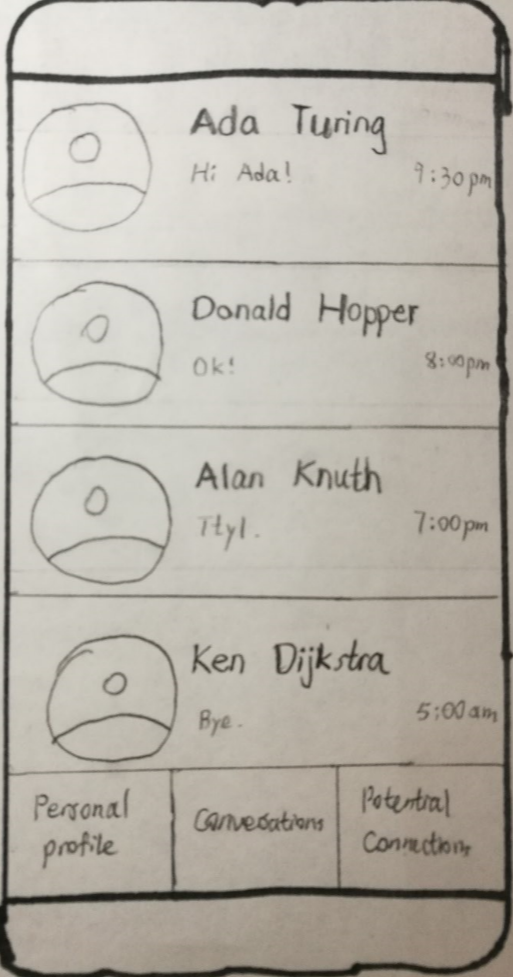 Ada Turing
Hi Ada!
9:30pm
Donald Hopper
Ok!
8:00pm
Alan Knuth
Ttyl.
7:00pm
Ken Dijkstra
Bye.
5:00am
Personal
profile
Conversations
Potential
Connections